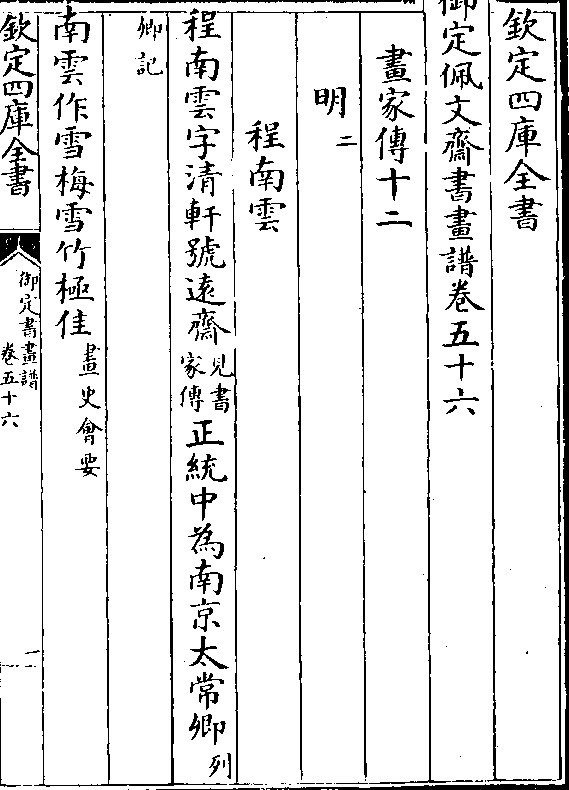 欽定四庫全書
御定佩文齋書畫譜卷五十六
畫家傳十二
明二
程南雲
程南雲字清軒號遠齋見書家傳正統中為南京太常卿列
卿記
南雲作雪梅雪竹極佳畫史會要
欽定四庫全書
御定書畫譜
卷五十六
一